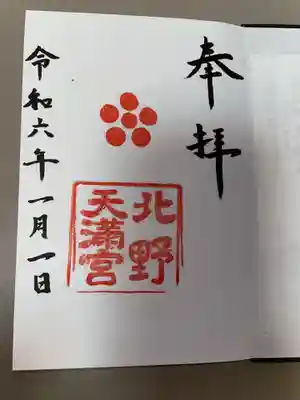 奉拝
北野
天満宮
令和六年一月一日